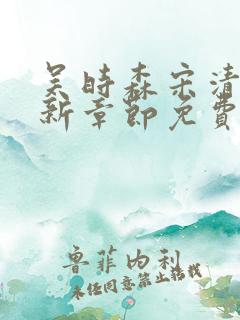 吴时森宋清
新章節免費
魯菲内利
未经同意禁止搭栈